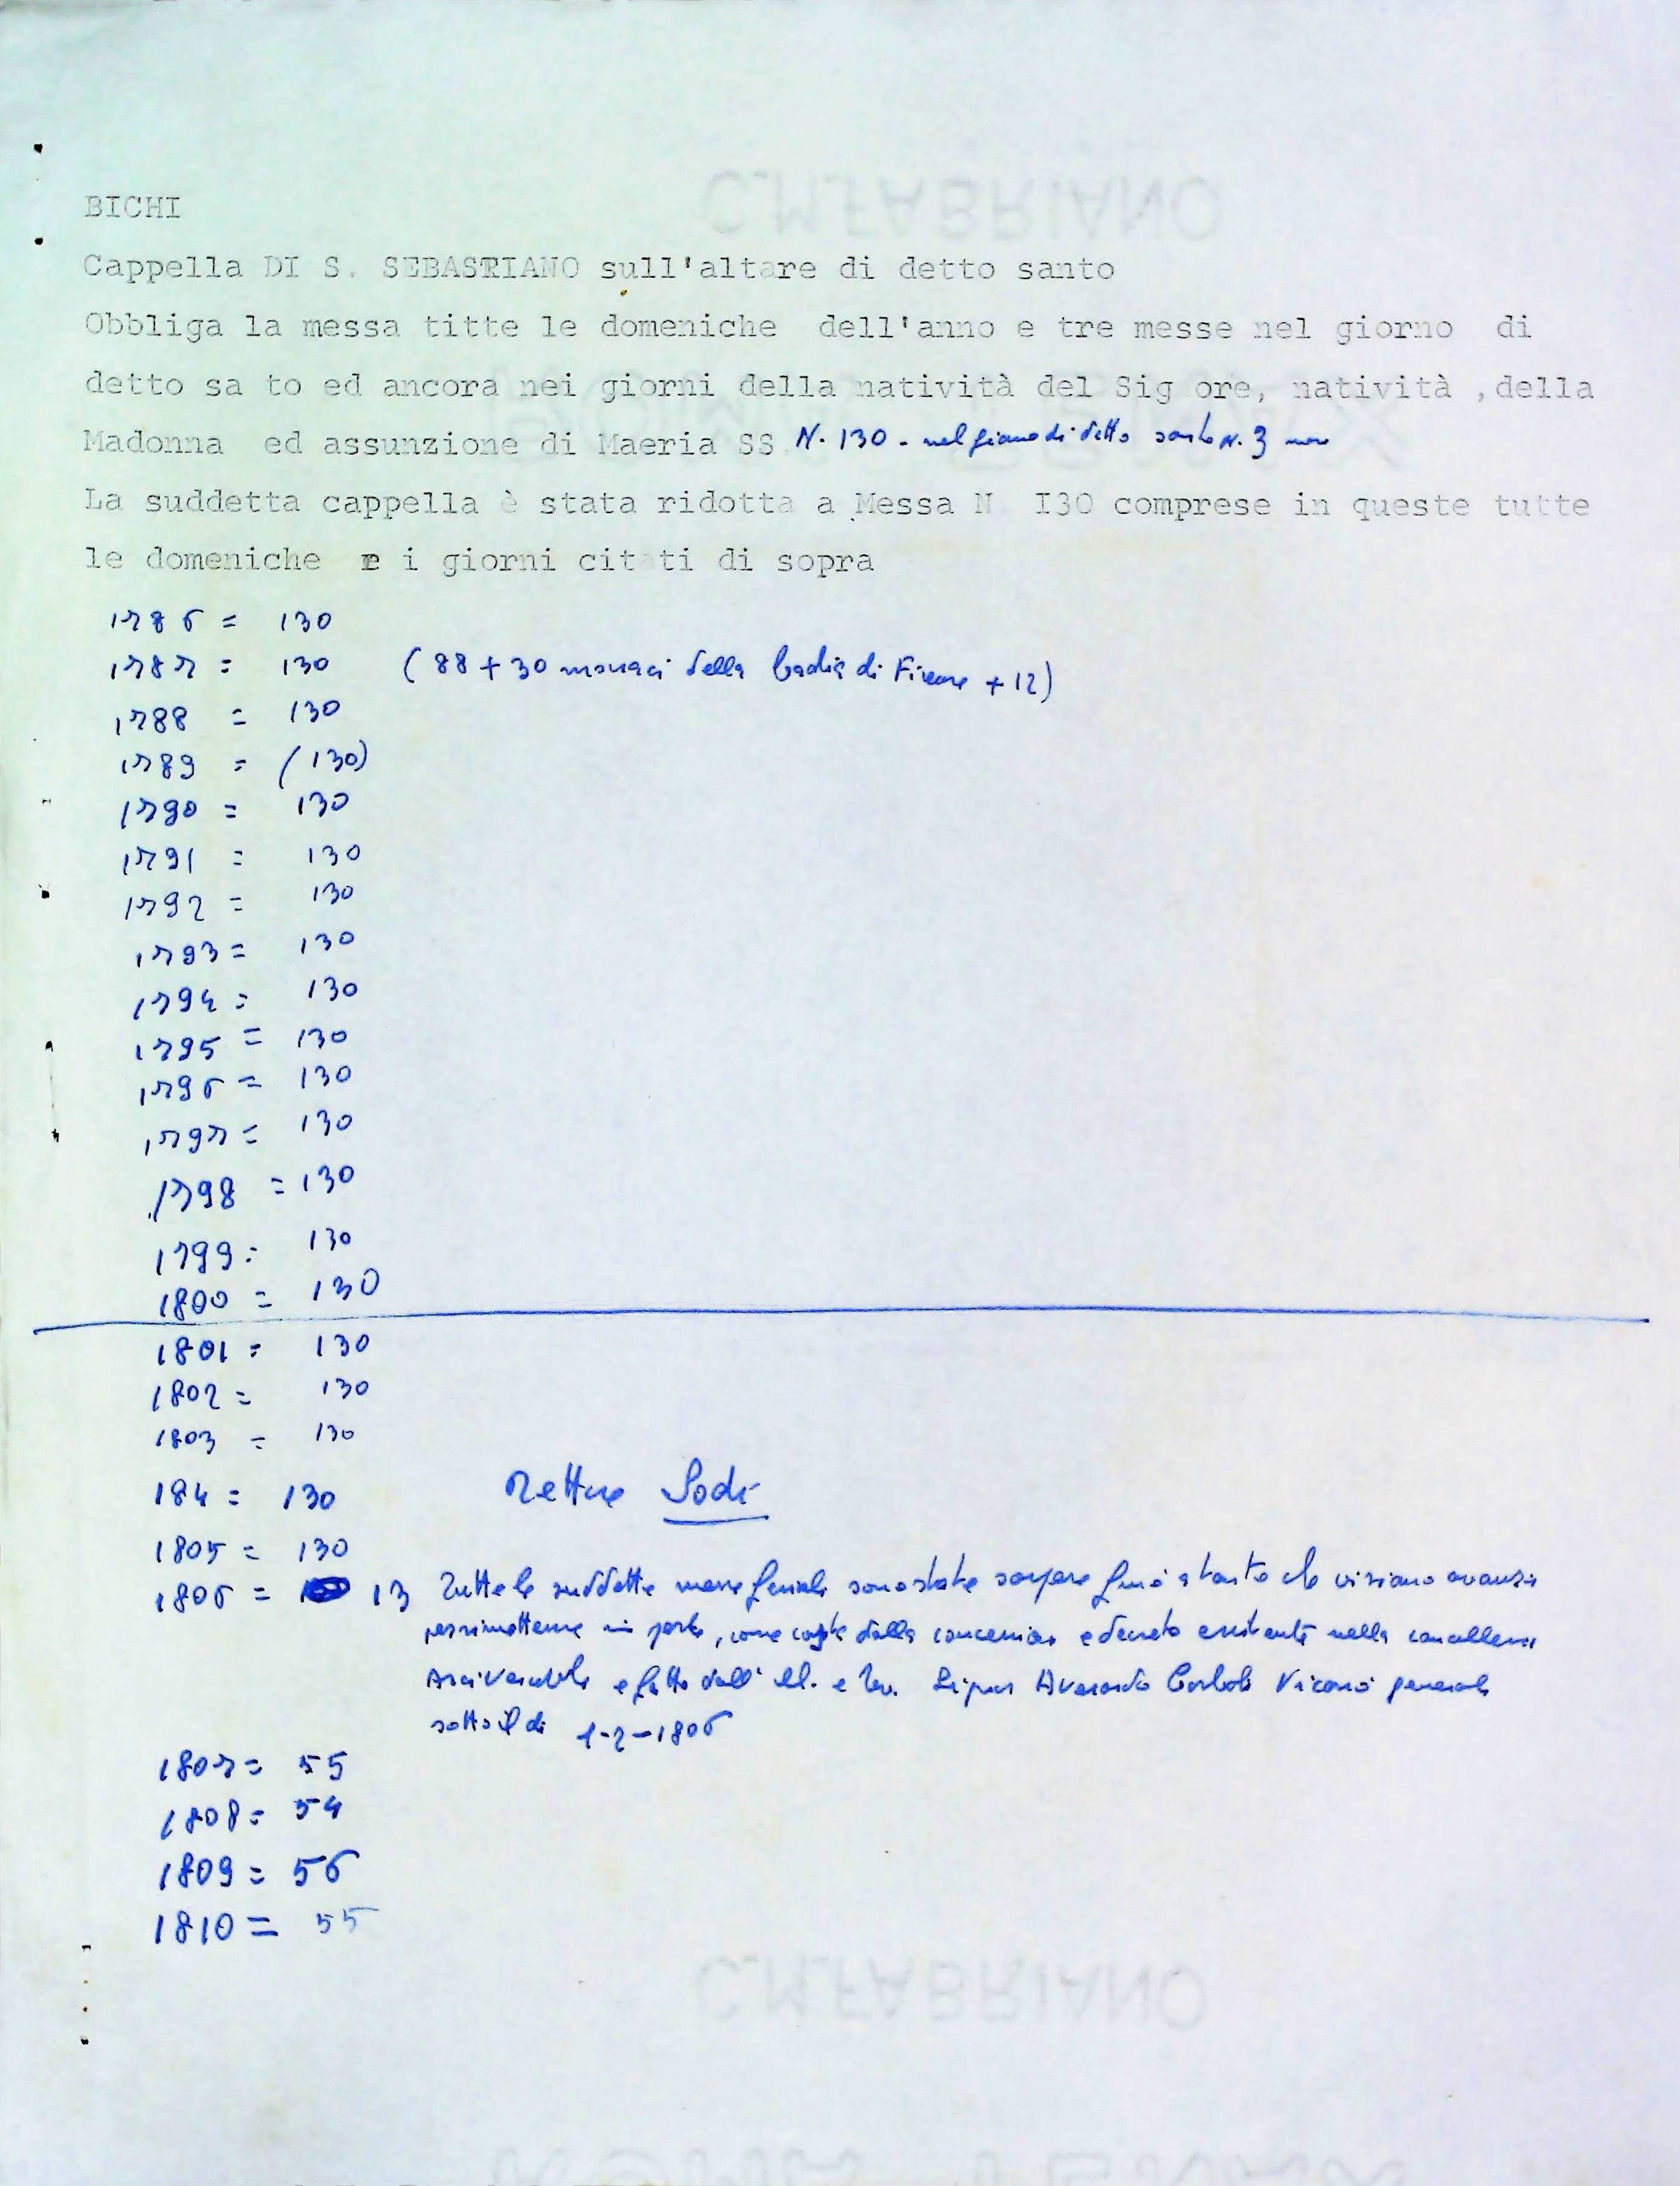 C.M.FABRIANO
BICHI
Cappella DI S. SEBASTIANO sull'altare di detto santo
Obbliga la messa titte le domeniche dell'anno e tre messe nel giorno di
detto sa to ed ancora nei giorni della natività del Sig ore, natività ,della
Madonna ed assunzione di Maeria SS N. 130 - nel giorno di detto santo N. 3
La suddetta cappella è stata ridotta a Messa N. I30 comprese in queste tutte
le domeniche e i giorni cit ti di sopra
1786 = 130
1787 = 130 (88 + 30 monaci della badia di Firenze + 12)
1788 = 130
1789 = (130)
1790 = 130
1791 = 130
1792 = 130
1793 = 130
1794 = 130
1795 = 130
1796 = 130
1797 = 130
1798 = 130
1799 = 130
1800 = 130
1801 = 130
1802 = 130
1803 = 130
184 = 130 Rettore Sodi
1805 = 130
1806 = 13 Tutte le suddette messe feriali sono state sospese fino a tanto che vi siano avanzi
in parte, come dalla concessione e decreto esistente nella cancelleria
Arcivescovile e fatto dall' Ill. e Rev. Signor Averardo Vicario generale
sotto il di 1-2-1806
1807 = 55
1808 = 54
1809 = 56
1810 = 55
C.M.FABRIANO